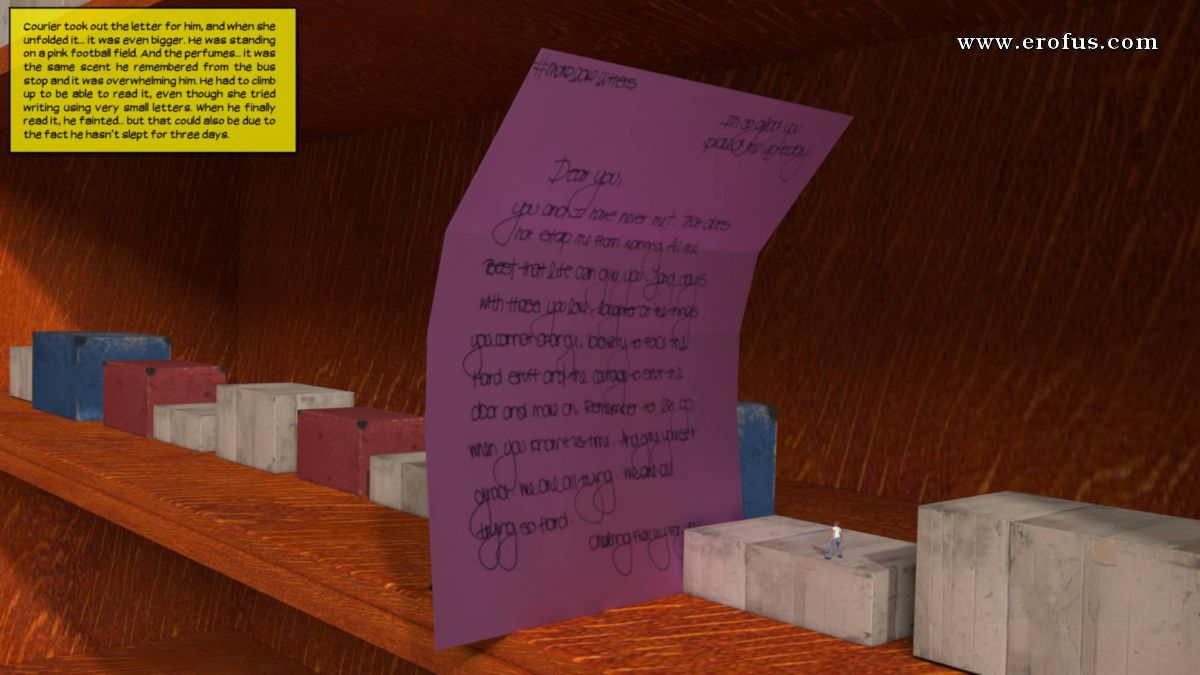 Courier took out the letter for him, and when she
unfolded it... it was even bigger. He was standing
on a pink football field. And the perfumes... it was
the same scent he remembered from the bus
stop and it was overwhelming him. He had to climb
up to be able to read it, even though she tried
writing using very small letters. When he finally
read it, he fainted... but that could also be due to
the fact he hasn't slept for three days.
www.erofus.com
#moreloveletters
I'm so glad you
picked me up today
Dear you,
you and I have never met. That does
not stop me from wanting all the
Best that life can give you. Long days
with those you love, laughter at the things
you cannot change, bravery to face the
hard stuff and the courage to shut the
door and move on. Remember to let go
when you know it is time. And give yourself
grace. We are all trying. We are all
trying so hard.
Cheering Fiercely For you